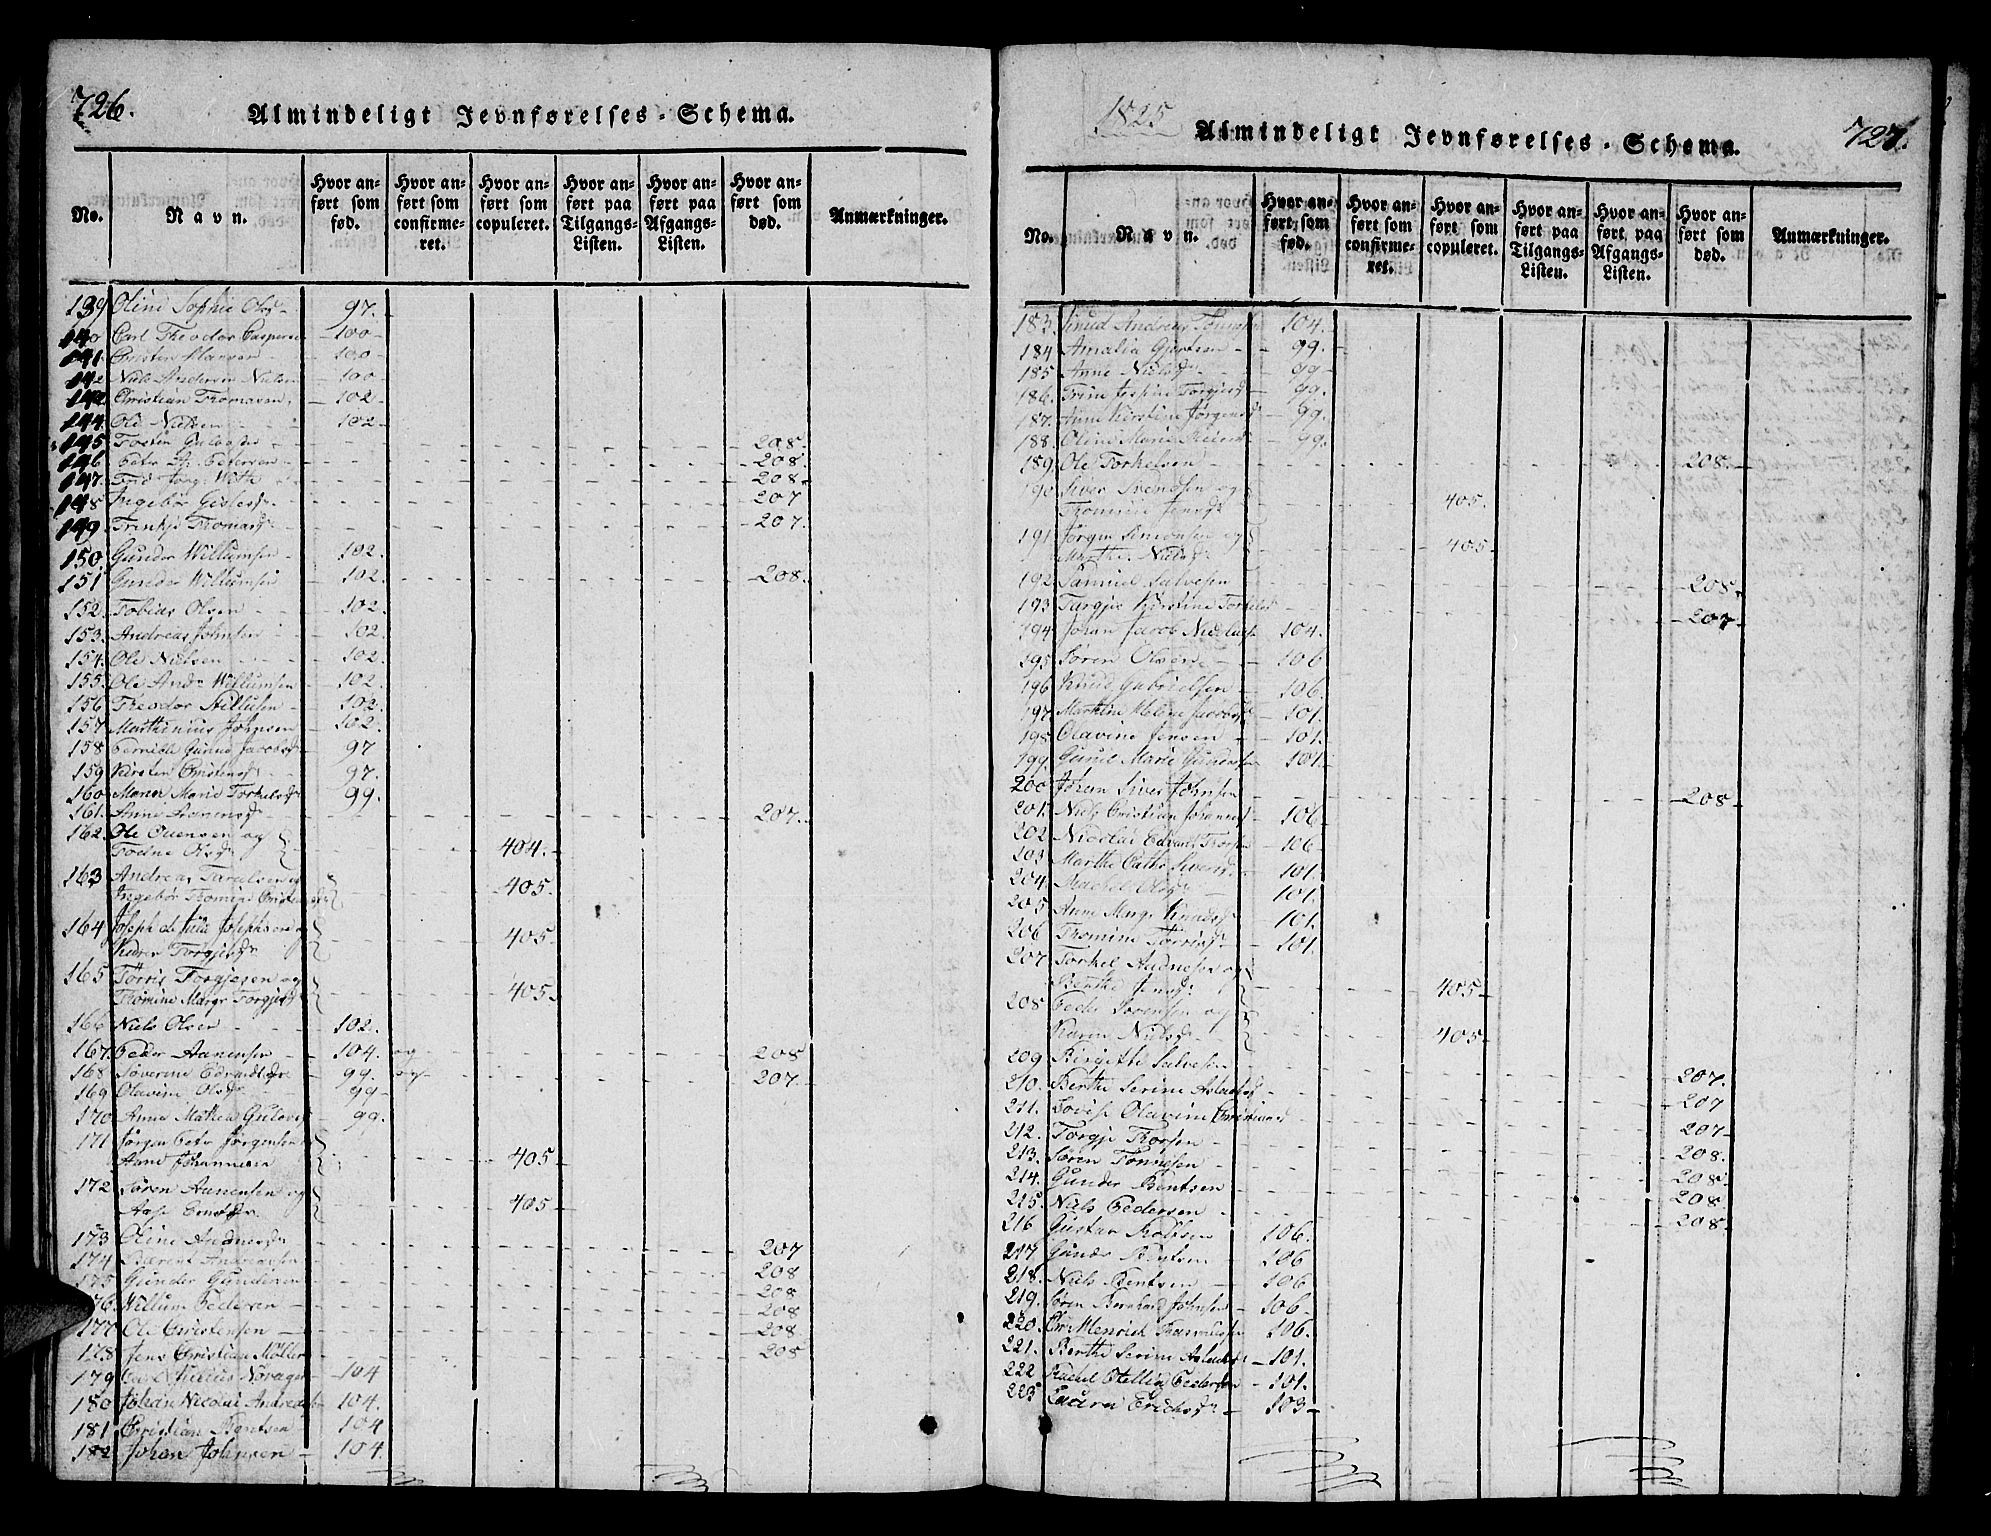 726.
Almindeligt Jevnførelses-Schema.
No.
Navn.
Hvor anført som fød.
Hvor anført som confirmeret.
Hvor anført som copuleret.
Hvor anført paa Tilgangs-Listen.
Hvor anført paa Afgangs-Listen.
Hvor anført som død.
Anmærkninger.
139 Oline Sophie Olsd. 97.
140 Carl Theodor Caspersen 100
141 Christen Hansen 100
142 Niels Andersen Nielsen 100
143 Christian Thomasen 102
144 Ole Nielsen 102
145 208.
146 Peter Pedersen 208.
147. 208.
148 Ingebor Gislesdr 207
149. Thomasdr 207.
150. Gunder Willumsen 102.
151 Gunder Willumsen 102. 208.
152. Tobias Olsen 102.
153. Andreas Johnsen 102.
154. Ole Nielsen 102.
155. Ole Andr. Willumsen 102.
156 Theodor 102.
157 Marthinius 102.
158 Pernille Gunild Jacobsd 97
159 Kirsten Christensd 97.
160 Maren Marie Torkelsdr 99.
161. Anne 207.
162. Ole Evensen og
Todne Olsdr 404.
163 Andreas Taralsen og
Ingebor Thomine 405.
164 Joseph Josephsen og
Karen Torgjesdr 405.
165 Torris Torgjesen og
Thomine Margr Torgjesdr 405.
166 Niels Olsen 102.
167. Peder Aanensen 104. og 208
168 Severine 99. og 207.
169 Olavine Olsdr 99
170 Anne Mathea 99.
171 Jørgen Peter Jørgensen
Anne Johannesen 405
172 Søren Aanensen og
405
173 Oline 207
174 Berent Andreassen 208
175 Gunder Gundersen 208
176. Willum Pedersen 208
177 Ole Christensen 208
178 Jens Christian Møller 208
179 Julius 104
180 Johan Nicolai 104.
181 Christian Bentsen 104
182 Johan Johnsen 104.
1825
Almindeligt Jevnførelses-Schema.
727.
No.
Navn.
Hvor anført som fød.
Hvor anført som confirmeret.
Hvor anført som copuleret.
Hvor anført paa Tilgangs-Listen.
Hvor anført paa Afgangs-Listen.
Hvor anført som død.
Anmærkninger.
183. Knud Andreas 104.
184 Amalia Gjertsen 99.
185 Anne Nielsdr 99
186. Trine 99.
187. Anne Kirstine Jørgensd 99.
188. Oline Marie 99.
189. Ole Torkelsen 208.
190 Siver Svendsen og
Thomine Jensdr 405.
191 Jørgen Simonsen og
Marthe Nielsdr 405
192 Samuel Salvesen 208.
193 Targjer Kirstine 207
194 Johan Jacob 104.
195 Søren Olsen 106
196 Knud Gabrielsen 106.
197. Marthine Helene Jacobsd 101.
198 Olavine Jensen 101.
199. Gunil Marie Gundersen 101
200 Johan Siver Johnsen 208
201. Niels Cristian 106
202 Nicolai Edvard 106
203 Marthe Cathr. Siversd 101.
204. Rachel Olsdr 101.
205 Anne Margr Knudsdr 101.
206 Thomine Torrisdr 101.
207 Torkel Audnesen og
Berthe Jensdr 405
208 Peder Sørensen og
Karen Nielsdr 405
209 Birgitte Salvesen 207.
210. Berthe Serine Aslacksd 207
211. Lovise Olavine 207
212. Torgje Thorsen 208.
213. Søren Tønnesen 208
214. Gunder Bentsen 208
215. Niels Pedersen 208
216 Gustav Jacobsen 106.
217. Gunder Bentsen 106
218. Niels Bentsen 106
219. Søren Bernhard Johnsen 106.
220. Henrich 106.
221. Berthe Serine Aslacksd 101.
222 Rachel Otellia Pedersen 101.
223 Laura Erichsdr 103